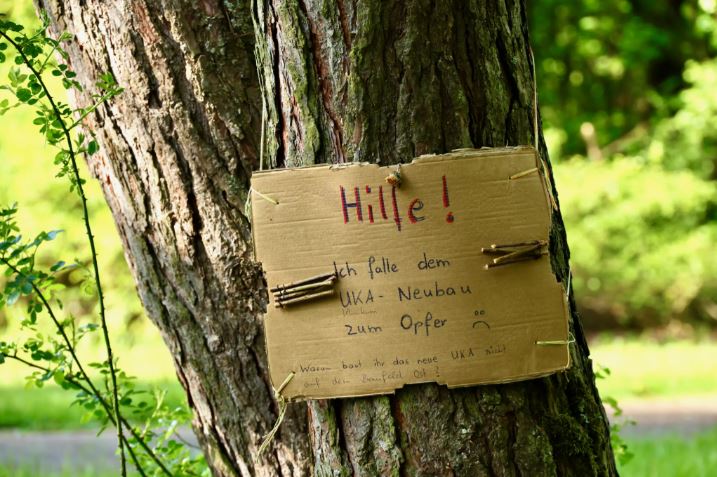 Hilfe!
Ich falle dem
UKA-Neubau
zum Opfer
Warum baut ihr das neue UKA nicht
auf dem Baufeld Ost?